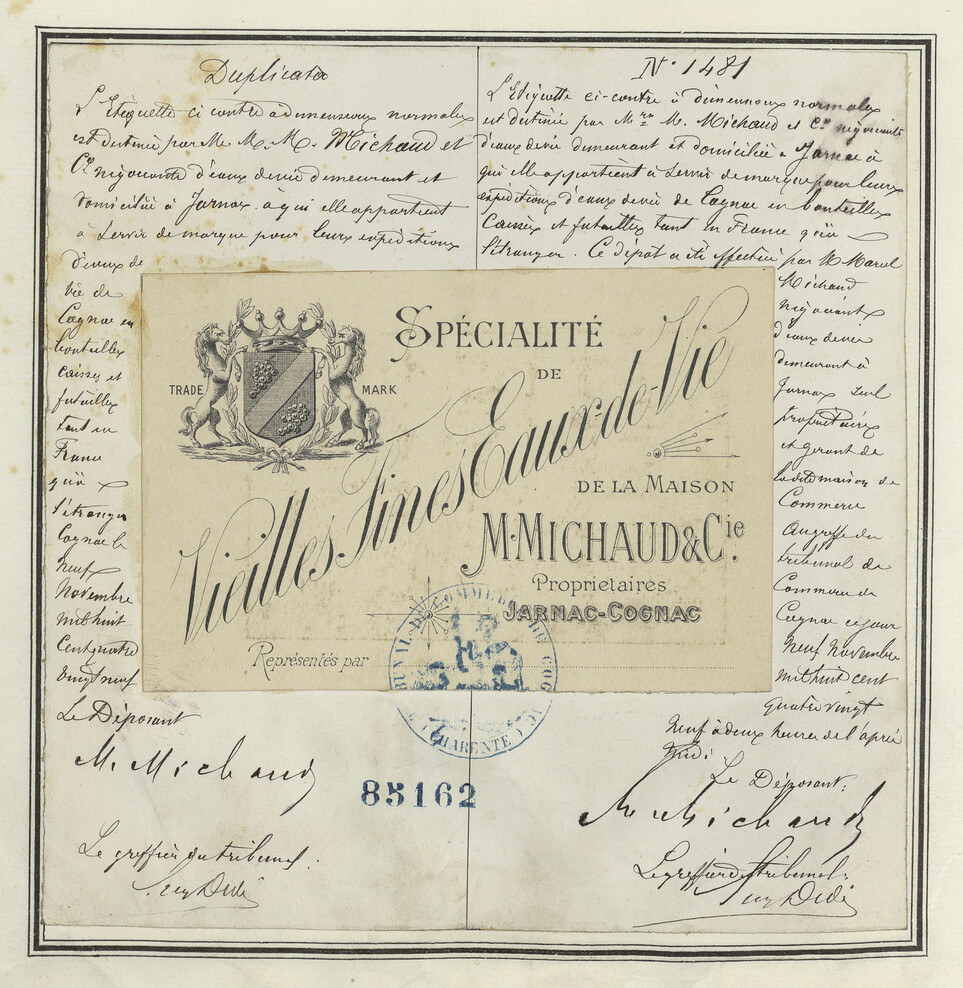 Duplicata
L'Etiquette ci contre à dimensions normales
est destinée par Me M. M. Michaud et
Cie négociants d'eaux devie demeurant et
domiciliée à Jarnac à qui elle appartient
à servir de marque pour leurs expéditions
d'eaux de
vie de
Cognac en
bouteilles
caisses et
futailles
tant en
France
qu'à
l'étranger
Cognac le
neuf
Novembre
mil huit
cent quatre
vingt neuf
Le Déposant
M. Michaud
Le greffier du tribunal.
N° 1481
L'Etiquette ci-contre à dimensions normales
est destinée par Mrs M. Michaud et Cie négociants
d'eaux devie demeurant et domiciliée à Jarnac à
qui elle appartient à servir de marque pour leurs
expéditions d'eaux devie de Cognac en bouteilles
Caisses et futailles tant en France qu'à
l'étranger. Ce dépôt a été effectué par M. Marcel
Michaud
négociant
d'eaux devie
demeurant à
Jarnac seul
propriétaire
et gérant de
la dite maison de
Commerce
au greffe du
tribunal de
Commerce de
Cognac ce jour
neuf Novembre
mil huit cent
quatre vingt
neuf à deux heures de l'après
midi
Le Déposant:
M. Michaud
Le greffier du tribunal:
TRADE MARK
SPÉCIALITÉ
DE
Vieilles Fines Eaux-de-Vie
DE LA MAISON
M. MICHAUD & Cie.
Proprietaires
JARNAC-COGNAC
Représentés par
TRIBUNAL DE COMMERCE DE COGNAC
(CHARENTE)
83162